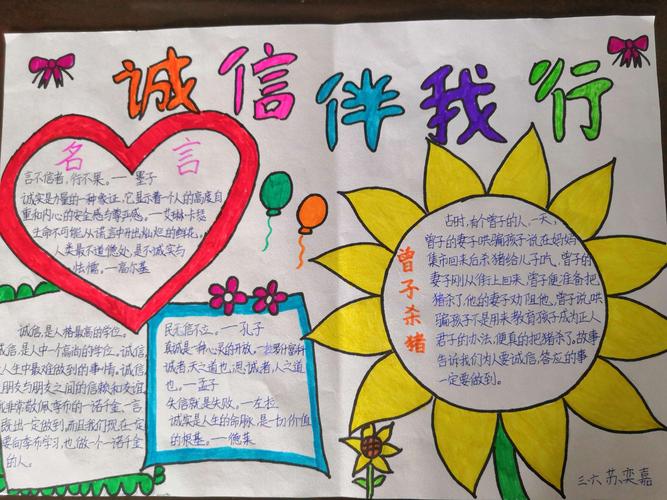 诚信伴我行
名言
言不信者，行不果。——墨子
诚实是力量的一种象征，它显示着一个人的高度自
重和内心的安全感与尊严感。——艾琳卡瑟
生命不可能从谎言中开出灿烂的鲜花。
人类最不道德处，是不诚实与
怯懦。——高尔基
诚信，是人格最高的学位。
诚信，是人中一个高尚的学位。诚信，
人生中最难做到的事情。诚信，
朋友与朋友之间的信赖和友谊，
非常敬佩季布的一诺千金、言
既出一定做到，而且我们现在一定
要向季布学习，也做一个一诺千金
的人。
民无信不立。——孔子
真诚是一种心灵的开放。——拉罗什富科
诚者，天之道也，思诚者，人之道
也。——孟子
失信就是失败。——左拉
诚实是人生的命脉，是一切价值
的根基。——德莱
曾子杀猪
古时，有个曾子的人，一天，
曾子的妻子哄骗孩子说在妈妈
集市回来后杀猪给儿子吃，曾子的
妻子刚从街上回来，曾子便准备把
猪杀了，他的妻子劝阻他，曾子说，哄
骗孩子不是用来教育孩子成为正人
君子的办法，便真的把猪杀了。故事
告诉我们为人要诚信，答应的事
一定要做到。
三六 苏奕嘉